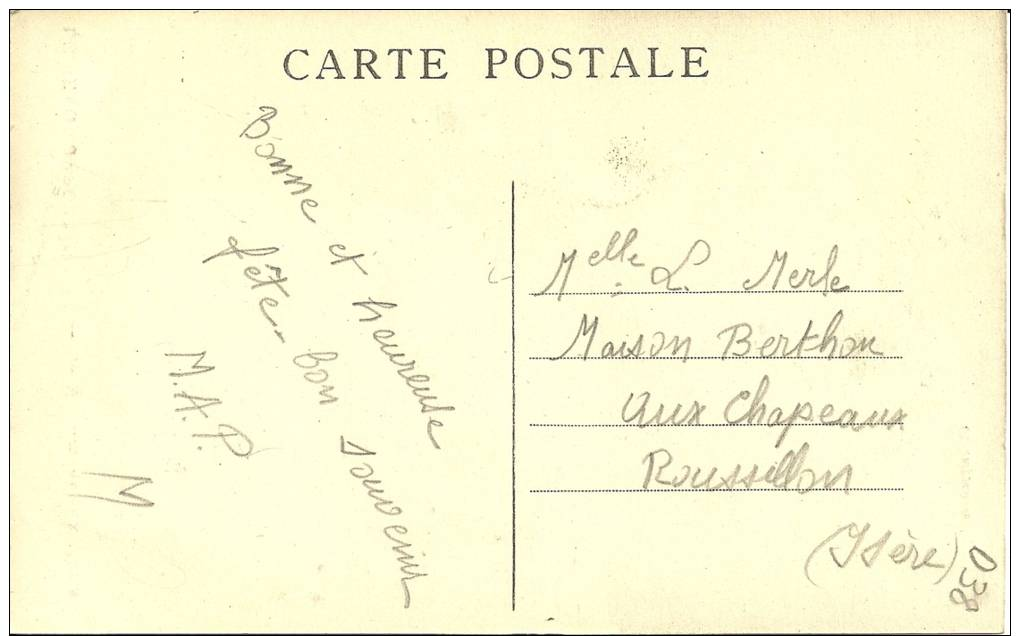 CARTE POSTALE
Bonne et heureuse
fête - bon souvenir
M.A.P.
M
Melle. L. Merle
Maison Berthon
Aux Chapeaux
Roussillon
(Isère)
D38